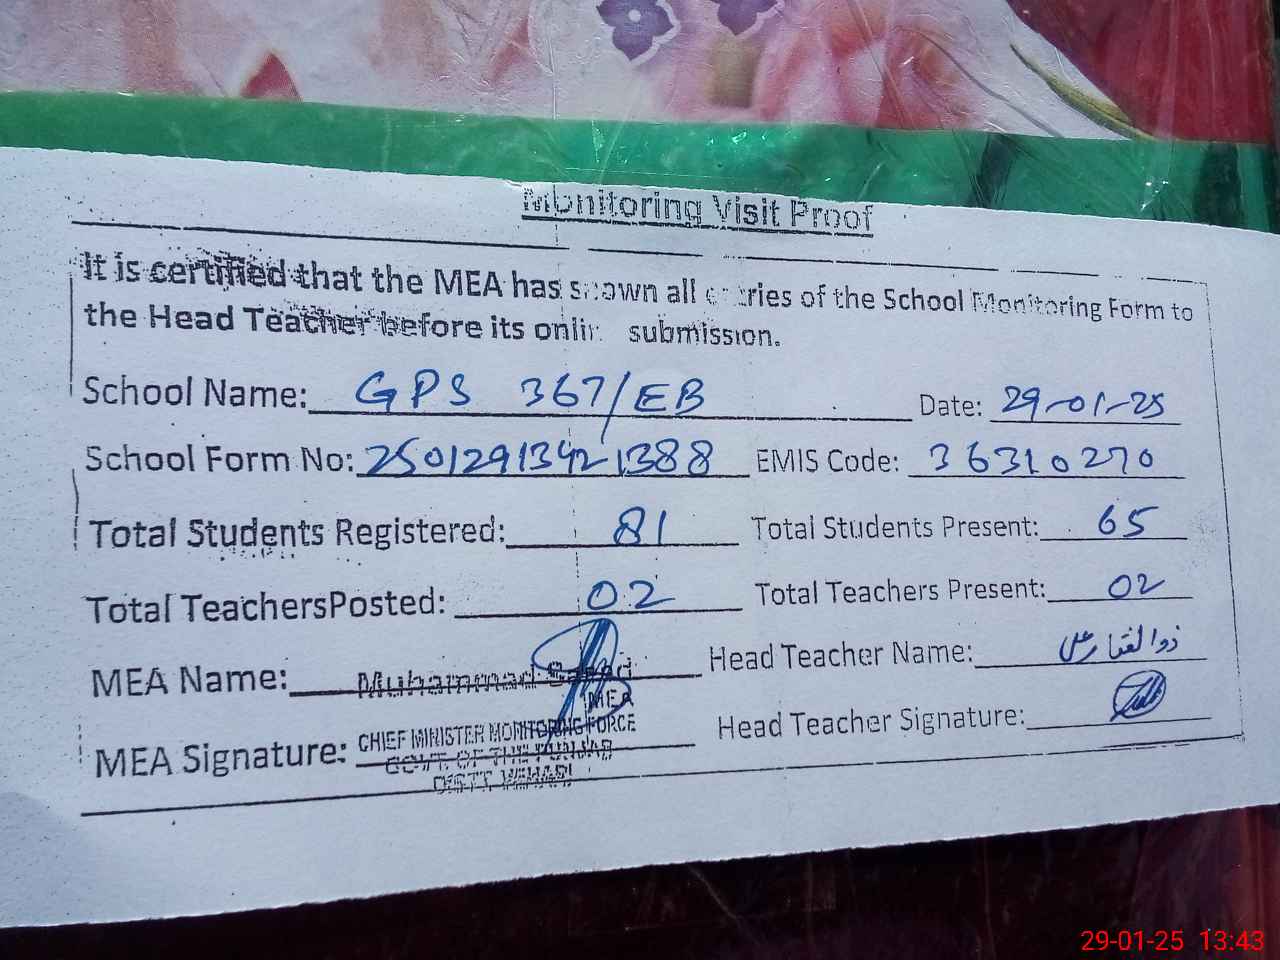 Monitoring Visit Proof
It is certified that the MEA has shown all entries of the School Monitoring Form to
the Head Teacher before its online submission.
School Name: GPS 367/EB Date: 29-01-25
School Form No: 25012913421388 EMIS Code: 36310270
Total Students Registered: 81 Total Students Present: 65
Total TeachersPosted: 02 Total Teachers Present: 02
MEA Name: Muhammad Head Teacher Name: ذوالفقار علی
MEA
MEA Signature: CHIEF MINISTER MONITORING FORCE Head Teacher Signature:
GOVT. OF THE PUNJAB
DISTT. VEHARI
29-01-25 13:43